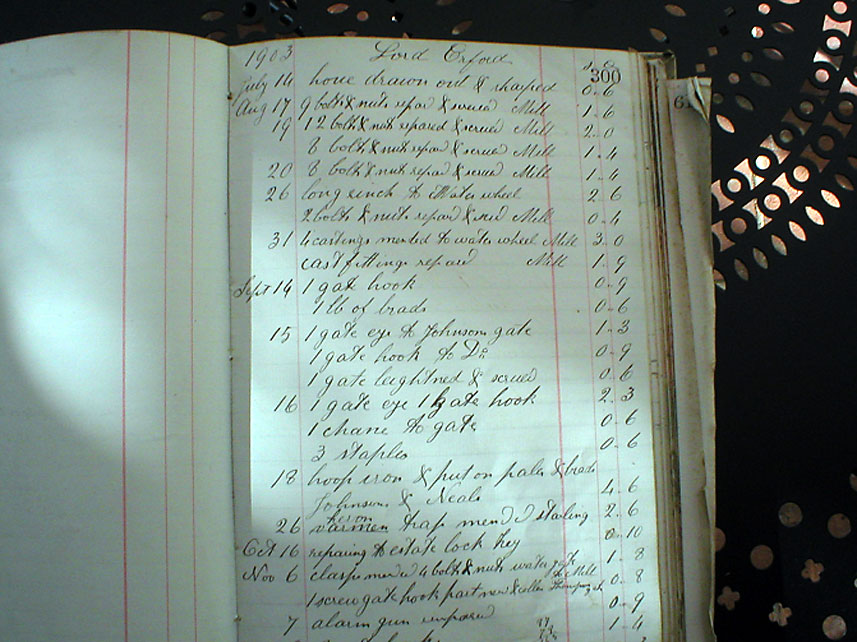 1903 Lord Orford s d
300
July 14 hone drawn out & sharped 0-6
Aug 17 9 bolt & nuts repair & scrued Mill 1-6
19 12 bolt & nut repared & scrued Mill 2-0
8 bolt & nut repair & scrued Mill 1-4
20 8 bolt & nut repair & scrued Mill 1-4
26 long to Water wheel 2 6
2 bolt & nuts repaird & Mill 0-4
31 4 castings mended to water wheel Mill 3-0
cast fittings repaird Mill 1-9
Sept 14 1 gate hook 0-9
1 lb of brads 0-6
15 1 gate eye to Johnsons gate 1-3
1 gate hook to Do 0-9
1 gate & scrued 0-6
16 1 gate eye 1 gate hook 2-3
1 chane to gate 0-6
3 staples 0-6
18 hoop iron & put on pales & brads
Johnsons & Neals 4-6
heron
26 varmen trap mend starling 2-6
Oct 16 repairing to estate lock key 0-10
Nov 6 clasp mend 4 bolt & nuts water gate 1-8
to Mill
1 screw gate hook part new & 0-8
7 alarm gun 0-9
1-4
61